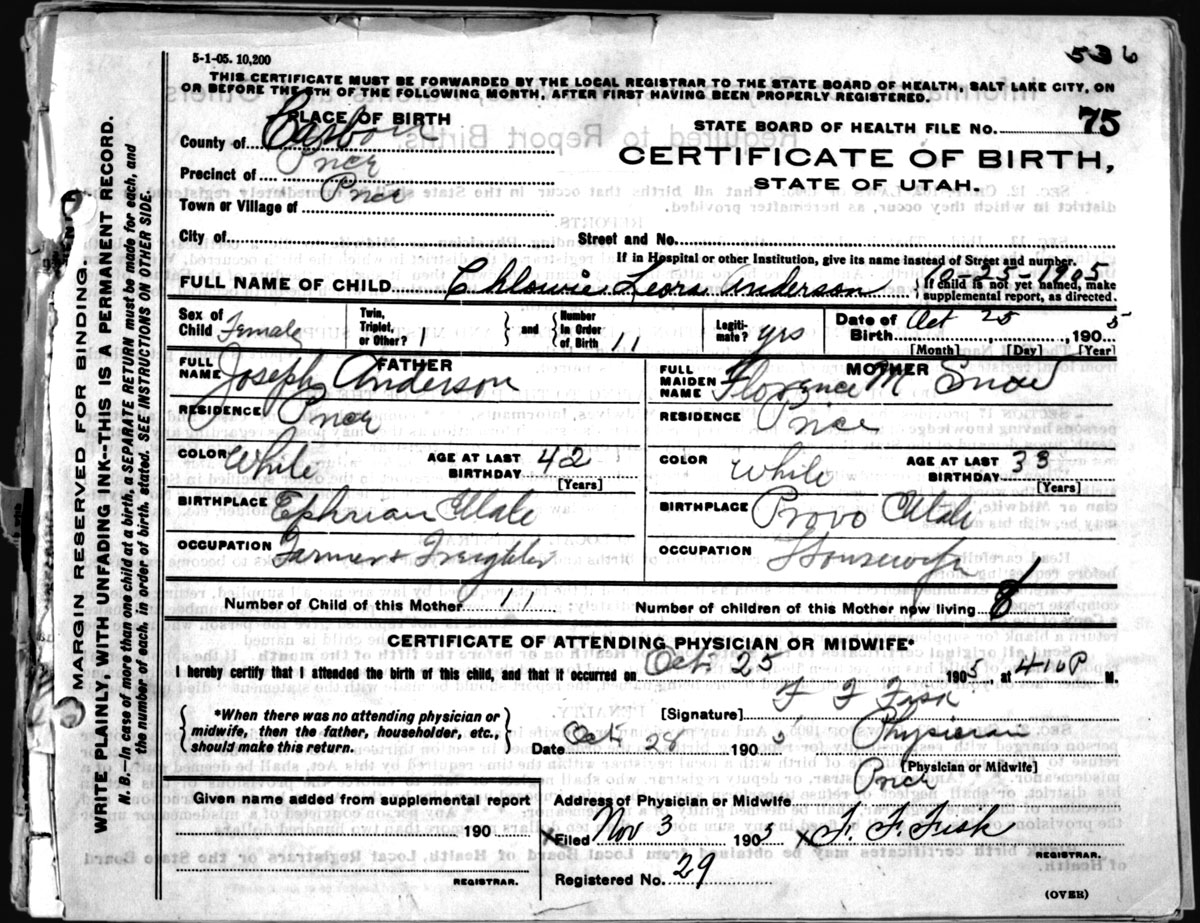 5-1-05. 10,200
536
THIS CERTIFICATE MUST BE FORWARDED BY THE LOCAL REGISTRAR TO THE STATE BOARD OF HEALTH, SALT LAKE CITY, ON
OR BEFORE THE 5TH OF THE FOLLOWING MONTH, AFTER FIRST HAVING BEEN PROPERLY REGISTERED.
PLACE OF BIRTH
STATE BOARD OF HEALTH FILE NO. 75
County of Carbon
CERTIFICATE OF BIRTH,
Precinct of Price
STATE OF UTAH.
Town or Village of Price
City of
Street and No.
If in Hospital or other Institution, give its name instead of Street and number.
10-25-1905
FULL NAME OF CHILD Chlowie Leora Anderson { If child is not yet named, make
supplemental report, as directed.
Sex of Child Female
Twin, Triplet, or Other? 1 } and { Number in Order of Birth 11
Legiti-mate? yrs
Date of Birth Oct 25, 1905
[Month] [Day] [Year]
FATHER
FULL NAME Joseph Anderson
MOTHER
FULL MAIDEN NAME Florence M Snow
RESIDENCE Price
RESIDENCE Price
COLOR White AGE AT LAST BIRTHDAY 42 [Years]
COLOR White AGE AT LAST BIRTHDAY 33 [Years]
BIRTHPLACE Ephrian Utah
BIRTHPLACE Provo Utah
OCCUPATION Farmer & Freighter
OCCUPATION Housewife
Number of Child of this Mother 11 Number of children of this Mother now living 8
CERTIFICATE OF ATTENDING PHYSICIAN OR MIDWIFE*
I hereby certify that I attended the birth of this child, and that it occurred on Oct. 25 1905, at 410 P M.
{ *When there was no attending physician or
midwife, then the father, householder, etc.,
should make this return. }
[Signature] F F Fisk
Date Oct 28 1905 Physician
[Physician or Midwife]
Given name added from supplemental report
190
REGISTRAR.
Address of Physician or Midwife Price
x Filed Nov 3 1905 x F. F. Fisk
REGISTRAR.
Registered No. 29
(OVER)
MARGIN RESERVED FOR BINDING
WRITE PLAINLY, WITH UNFADING INK--THIS IS A PERMANENT RECORD.
N. B.--In case of more than one child at a birth, a SEPARATE RETURN must be made for each, and
the number of each, in order of birth, stated. SEE INSTRUCTIONS ON OTHER SIDE.